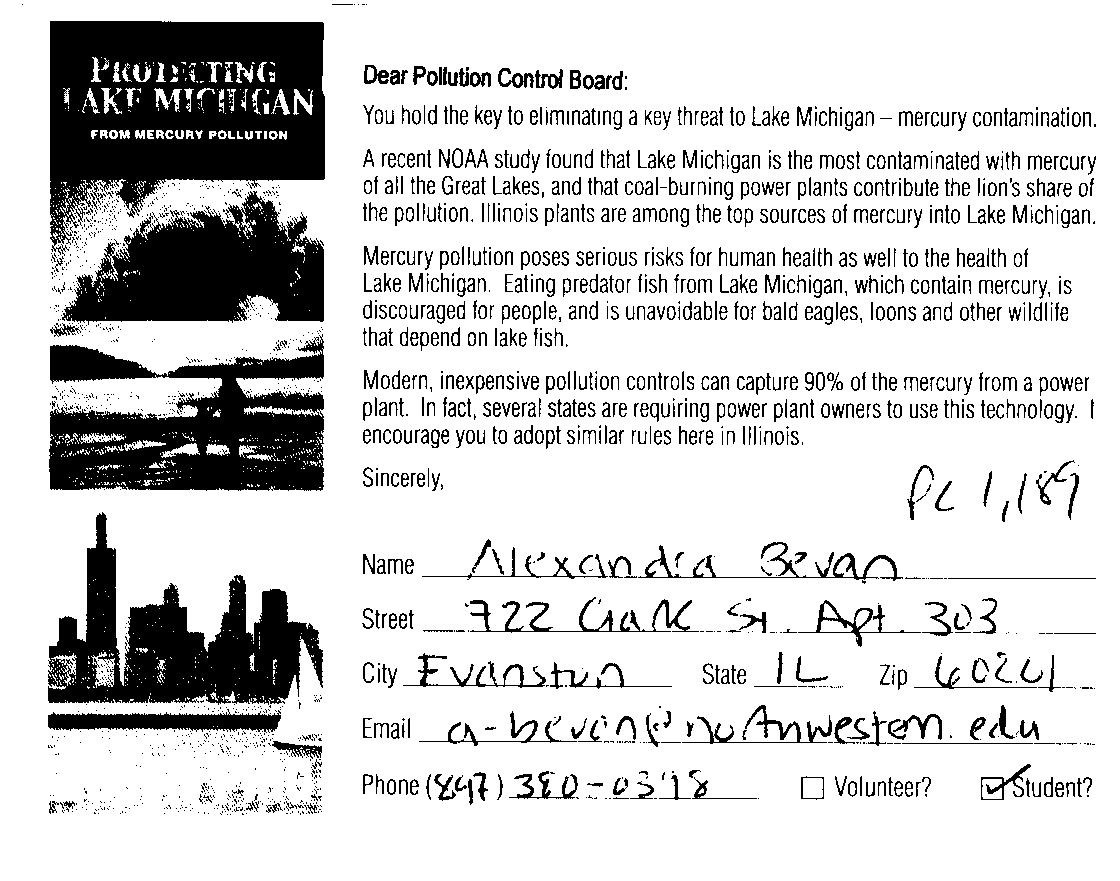 PROTECTING
LAKE MICHIGAN
FROM MERCURY POLLUTION
Dear Pollution Control Board:
You hold the key to eliminating a key threat to Lake Michigan – mercury contamination.
A recent NOAA study found that Lake Michigan is the most contaminated with mercury
of all the Great Lakes, and that coal-burning power plants contribute the lion's share of
the pollution. Illinois plants are among the top sources of mercury into Lake Michigan.
Mercury pollution poses serious risks for human health as well to the health of
Lake Michigan. Eating predator fish from Lake Michigan, which contain mercury, is
discouraged for people, and is unavoidable for bald eagles, loons and other wildlife
that depend on lake fish.
Modern, inexpensive pollution controls can capture 90% of the mercury from a power
plant. In fact, several states are requiring power plant owners to use this technology. I
encourage you to adopt similar rules here in Illinois.
Sincerely,
PC 1,189
Name Alexandra Bevan
Street 722 Clark St. Apt. 303
City Evanston State IL Zip 60201
Email a-bevan@northwestern.edu
Phone (847) 380-0398 Volunteer? Student?